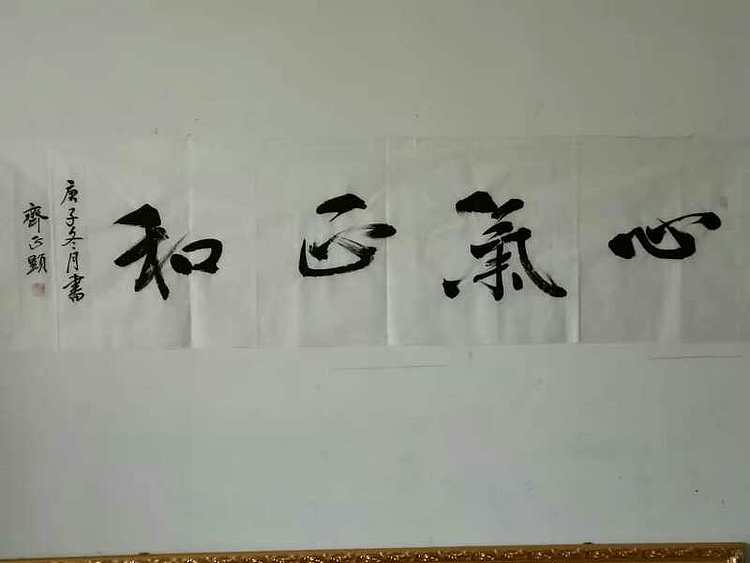 心氣正和
庚子冬月書
齊正顯